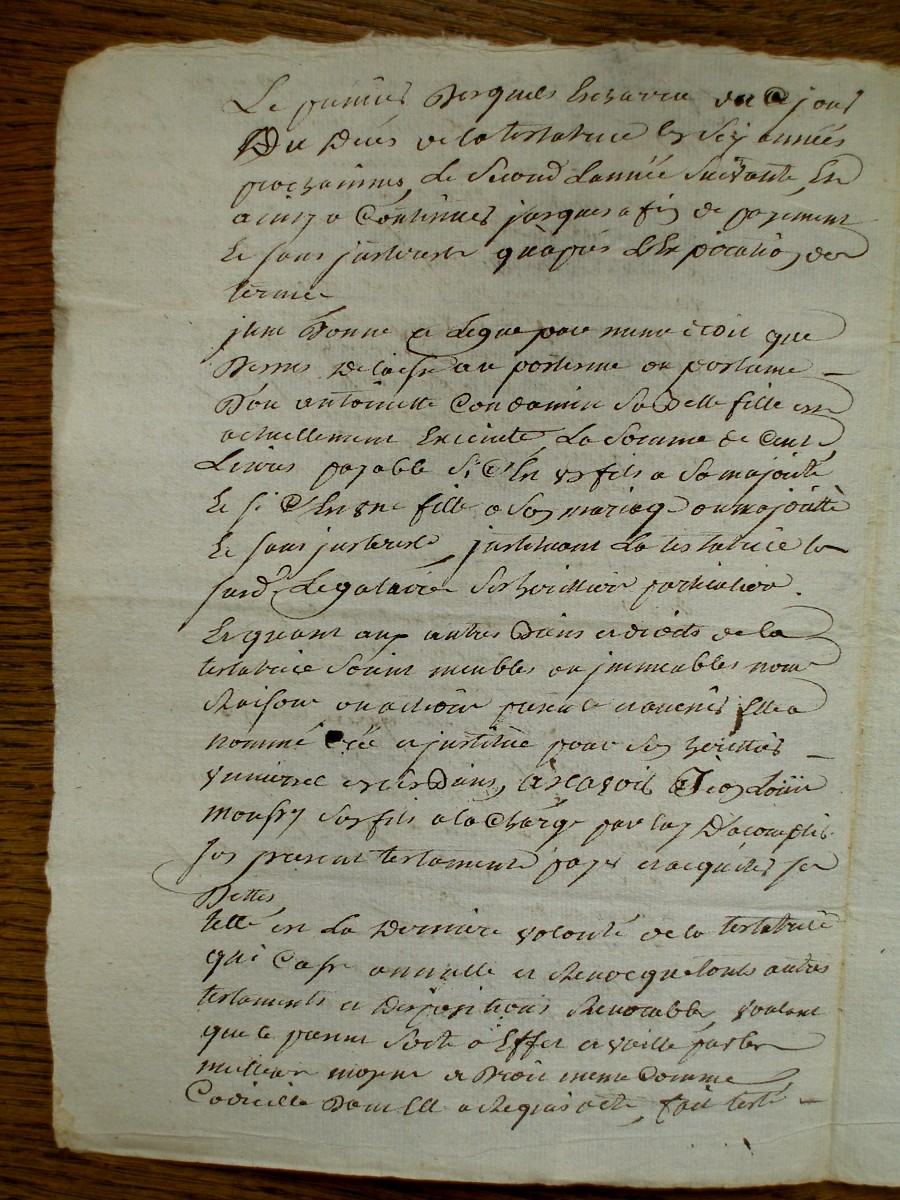 Le premier desquels echerra du @ jour
Du Decés de la testatrice en six années
prochaines, Le Second Lannée Suivante, Et
ainsy a Continuer jusques a fin de payement
Et sans jnterest qu'apres L'Expiration des
termes
jtem Donne et Legue par meme droit que
Dessus au postume ou postume
D'ou antoinette Condamin Sa Belle fille est
actuellement Enceinte, La Somme de Cent
Livres payable Si C'En un fils a Sa majorité
Et si C'En une fille a Son mariage ou majorité
Et sans jnterest, jnstituant La testatrice les
susd. Legataires Ses heritiers particuliers.
Et quant aux autres Biens et droits de la
testatrice Soint meubles ou jmmeubles noms
Raisons ou actions presents et avenir Elle a
nommé Créé et jnstitué pour Son heritier
universel en ses Biens, asçavoir Jean Louis
son fils a la Charge par luy D'acomplir
son present testament payer et acquiter ses
Dettes,
telle est La Derniere volonté de la testatrice
qui Casse annulle et Revocque touts autres
testaments et Dispositions Revocables, voulant
que le present Sorte a Effet et vaille par les
meilleurs moyens de Droit meme Comme
Codicille Dont Elle a Requis acte, fait testé